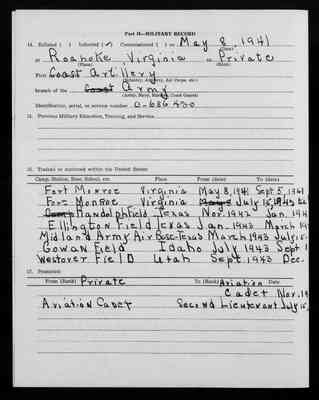 Part II—MILITARY RECORD
14. Enlisted ( ) Inducted (✓) Commissioned ( ) on May 8, 1941
(Date)
at Roanoke, Virginia as Private
(Place) (Rank)
First Coast Artillery
(Infantry, Artillery, Air Corps, etc.)
branch of the Army
(Army, Navy, Marine, Coast Guard)
Identification, serial, or service number O-686430
15. Previous Military Education, Training, and Service
16. Trained or stationed within the United States:
Camp, Station, Base, School, etc. Place From (date) To (date)
Fort Monroe Virginia May 8, 1941 Sept 5, 1941
Fort Monroe Virginia July 15, 1942
Randolph Field Texas Nov. 1942 Jan. 194
Ellington Field Texas Jan. 1943 March 19
Midland Army Air Base-Texas March 1943 July 15
Gowan Field Idaho July 1943 Sept 1
Westover Field Utah Sept. 1943 Dec.
17. Promoted:
From (Rank) Private To (Rank) Aviation Date
Cadet Nov. 19
Aviation Cadet Second Lieutenant July 15